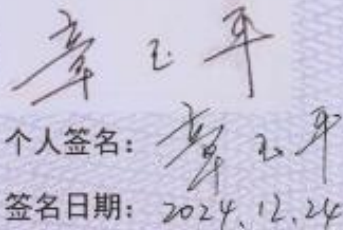 章玉平
个人签名：章玉平
签名日期：2024.12.24